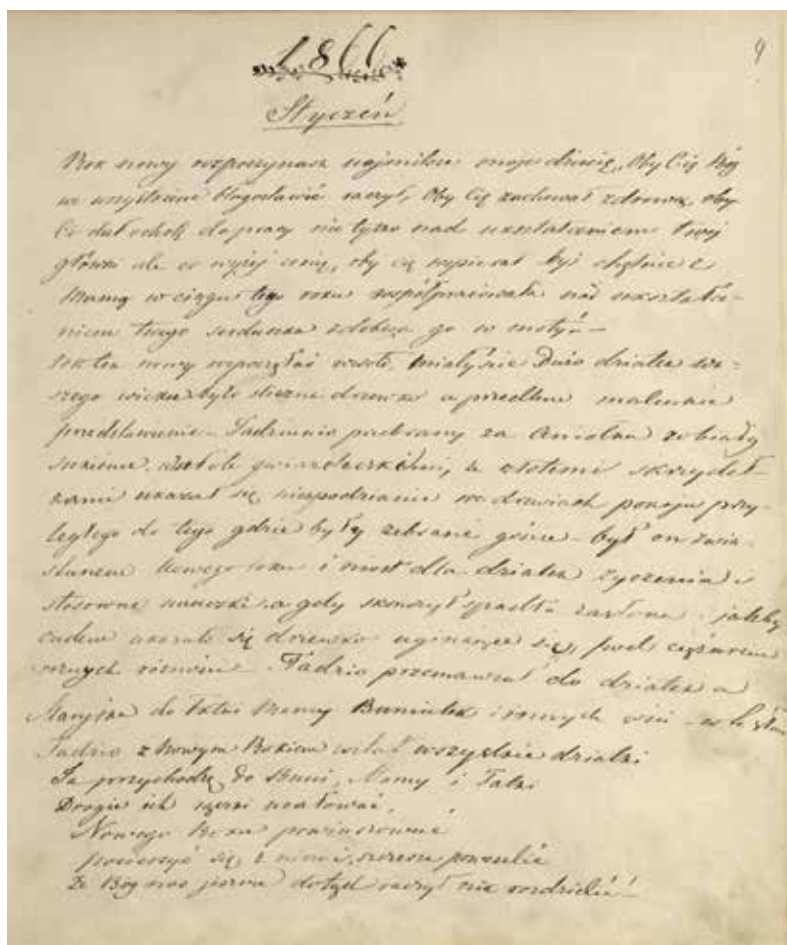 1866
9
Styczeń
Rok nowy rozpoczynasz najmilsze moje dziecię, Oby Cię Bóg
we wszystkiem błogosławić raczył, Oby Cię zachował zdrową, oby
Ci dał ochotę do pracy nie tylko nad ukształceniem twej
główki ale co wyżej cenię, oby cię wspierał byś chętnie z
Mamą w ciągu tego roku współpracowała nad ukształce-
niem twego serduszka zdobiąc go w
Rok ten nowy rozpoczęłaś wesoło, miałyście Dużo dziatek
szego wieku było śliczne drzewko a przedtem maleńkie
przedstawienie - Tadziunio przebrany za Aniołka w białej
sukience gwiazdeczkami, ze złotemi skrzydeł-
kami ukazał się niespodzianie we drzwiach pokoju przy-
ległego do tego gdzie były zebrane goście - był on zwia-
stunem Nowego roku i niósł dla dziatek życzenia i
stosowne nauczki a gdy skończył spadła zasłona i jakby
cudem ukazało się drzewko uginające się pod ciężarem
Tadzio przemawiał do dziatek a
Marynia do Tatki Mamy Buniulek i innych
Tadzio z Nowym Rokiem witał wszystkie dziatki
Ja przychodzę do Buni, Mamy i Tatki
Drogie ich rączki ucałować,
Nowego Roku powinszować
pocieszyć się z nimi, szczerze pomodlić
Że Bóg nas dotąd raczył nie rozdzielić!